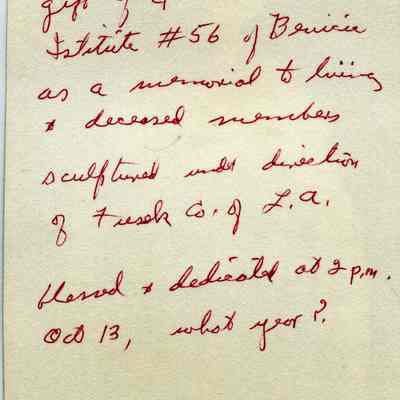 gift of
Istitute #56 of Benicia
as a memorial to living
& deceased members
sculptured under direction
of Fusek Co. of L.A.
blessed & dedicated at 2 p.m.
Oct 13, what year?